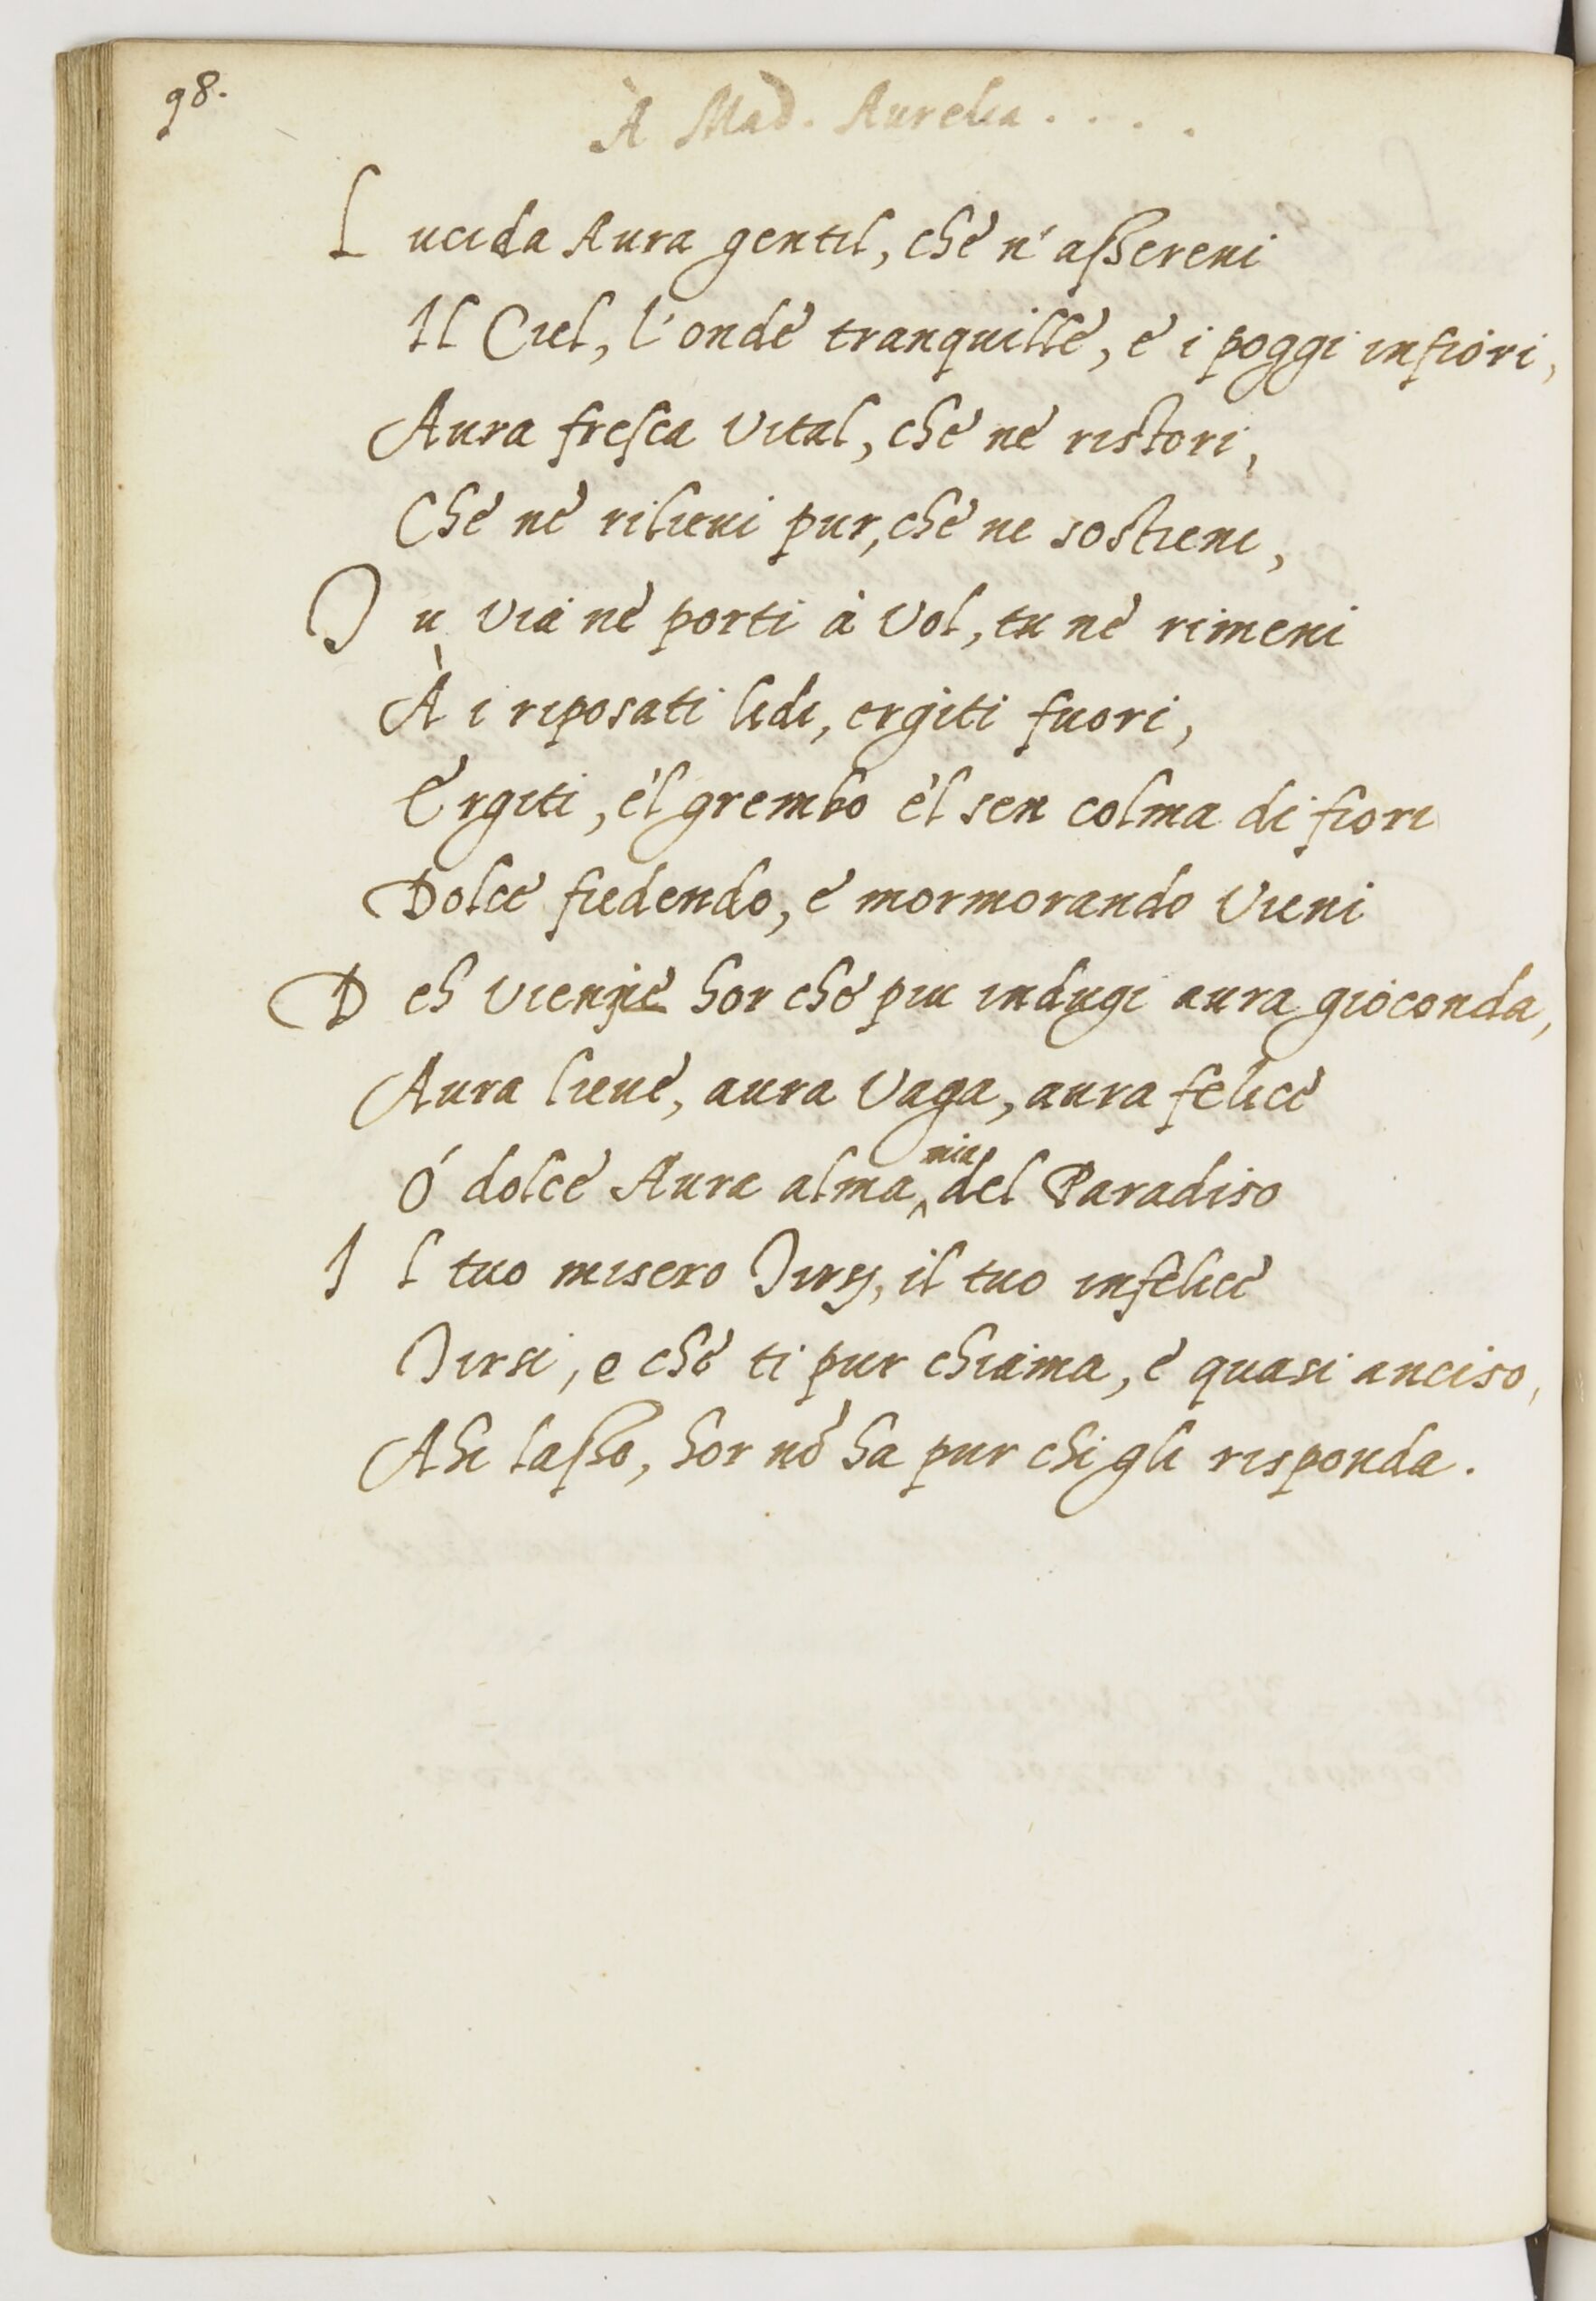 98.
À Mad. Aurelia . . . .
Lucida Aura gentil, che n'assereni
Il Ciel, l'onde tranquille, e i poggi infiori,
Aura fresca vital, che ne ristori,
Che ne rilievi pur, che ne sostieni,
Tu via ne porti à vol, tu ne rimeni
À i riposati lidi, ergiti fuori,
Ergiti, e'l grembo e'l sen colma di fiori
Dolce fiedendo, e mormorando vieni
Deh vienne hor che piu indugi aura gioconda,
Aura lieve, aura vaga, aura felice
Ó dolce Aura alma mia del Paradiso
Il tuo misero Tirsi, il tuo infelice
Tirsi, e che ti pur chiama, e quasi anciso,
Ahi lasso, hor nõ ha pur chi gli risponda.